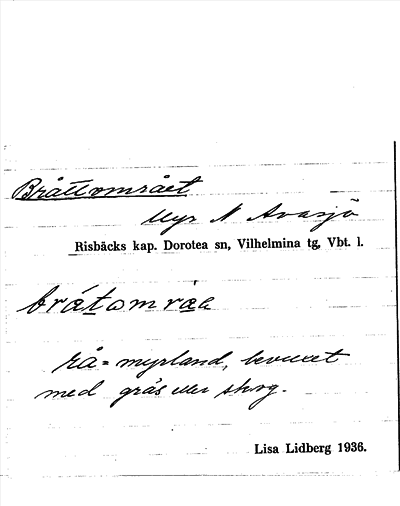 Bråttområet
Myr N Avasjö
Risbäcks kap. Dorotea sn, Vilhelmina tg, Vbt. l.
brátområe
rå = myrland, bevuxet
med gräs eller skog.
Lisa Lidberg 1936.